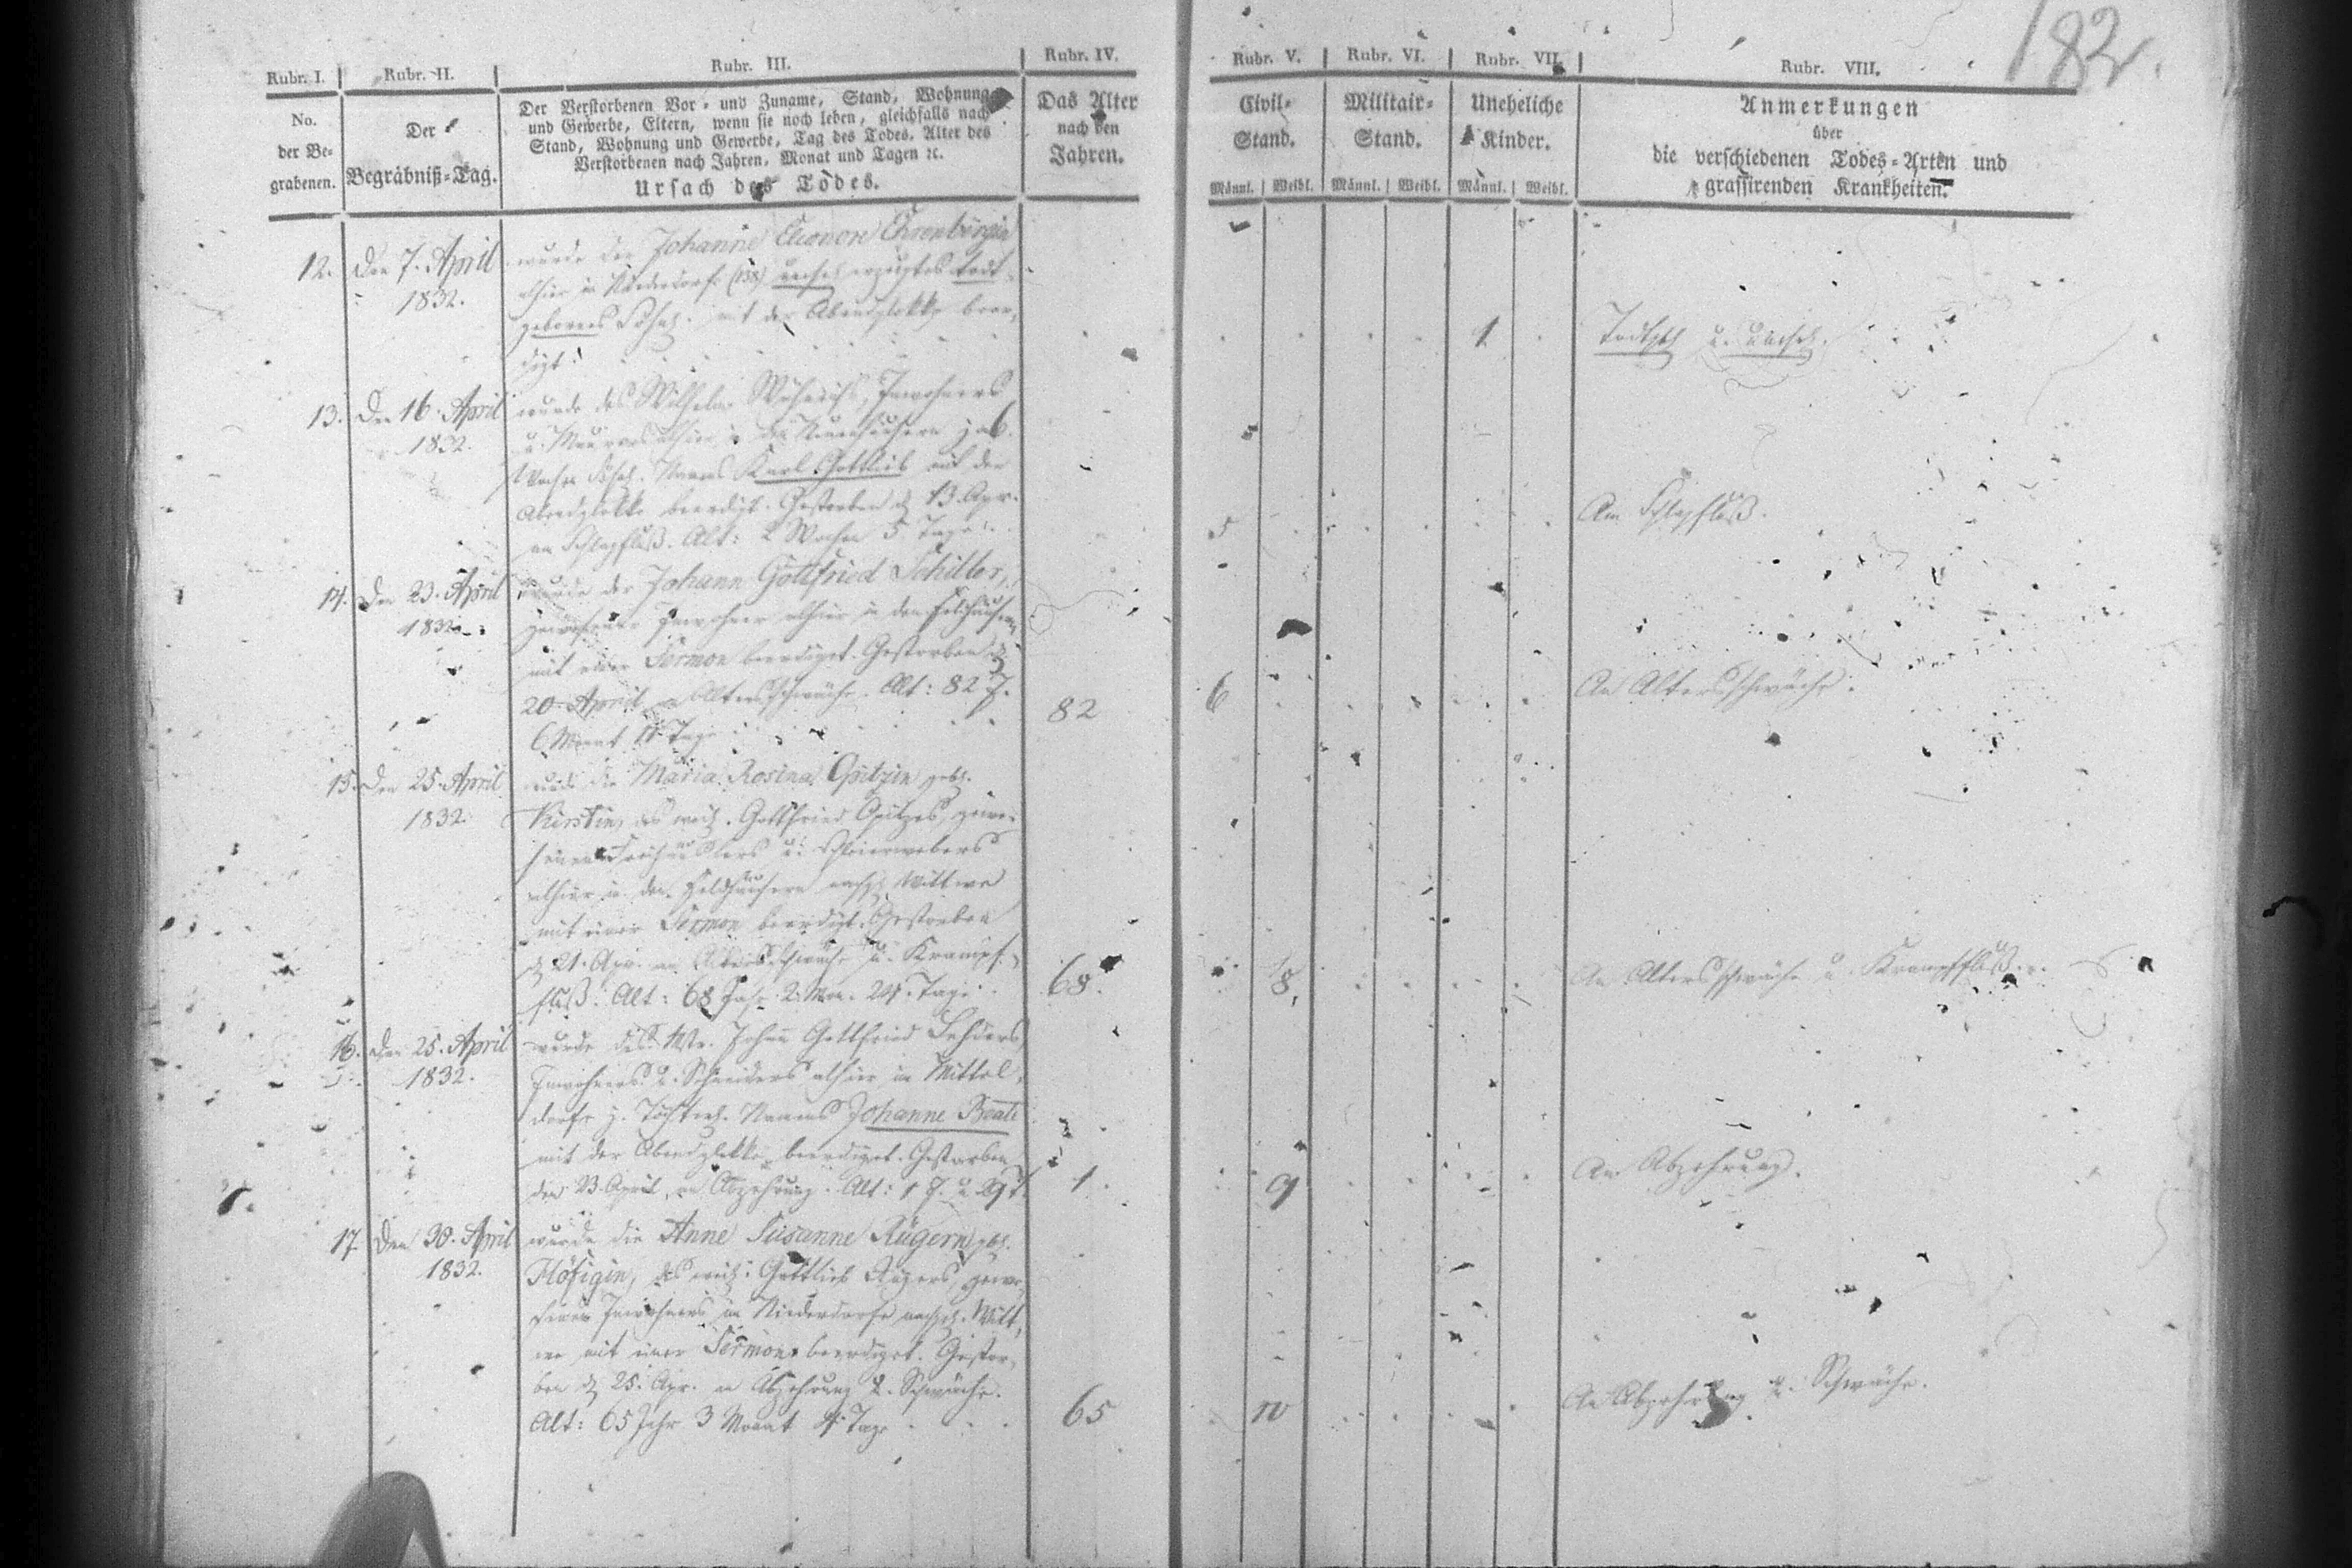 182.
Rubr. I. Rubr. II. Rubr. III. Rubr. IV. Rubr. V. Rubr. VI. Rubr. VII. Rubr. VIII.
No. der Be-grabenen.
Der Begräbniß-Tag.
Der Verstorbenen Vor- und Zuname, Stand, Wohnung
und Gewerbe, Eltern, wenn sie noch leben, gleichfalls nach
Stand, Wohnung und Gewerbe, Tag des Todes, Alter des
Verstorbenen nach Jahren, Monat und Tagen ꝛc.
Ursach des Todes.
Das Alter nach den Jahren.
Civil-Stand.
Militair-Stand.
Uneheliche Kinder.
Männl. Weibl. Männl. Weibl. Männl. Weibl.
Anmerkungen
über
die verschiedenen Todes-Arten und
grassirenden Krankheiten.
12. Den 7. April wurde der Johanne Eleonore Ehrenbergin
1832. alhier in Niederdorfe (138) unehel. erzeugtes todt-
gebornes Söhnl. mit der Abendglokke beer-
digt. 1 Todtgeb. u. unehel.
13. Den 16. April wurde des Wilhelm Inwohners
1832. u. Maurers alhier in den Neuenhäusern
Söhnl. Namens Karl Gottlieb mit der
Abendglokke beerdigt. Gestorben d. 13. Apr.
am Schlagfluß. Alt: 2 Wochen 5 Tage. 5 Am Schlagfluß.
14. Den 23. April wurde der Johann Gottfried Schiller,
1832. gewesener Inwohner alhier in den Feldhäusern
mit einer Sermon beerdiget. Gestorben d.
20. April an Altersschwäche. Alt: 82 J.
6 Monat Tage 82 6 An Altersschwäche.
15. Den 25. April wurde die Maria Rosina Opitzin geb.
1832. Kirstin, des weil. Gottfried Opitzes, gewe-
senen Freihäuslers u. Schleierwebers
alhier in den Feldhäusern nachgel. Wittwe
mit einer Sermon beerdigt. Gestorben
d. 21. Apr. an Altersschwäche u. Krampf-
fluß. Alt: 68 Jahr 2 Mon. 24 Tage. 68. 8. An Altersschwäche u. Krampffluß.
16. Den 25. April wurde des Mstr. Johann Gottfried
1832. Inwohners u. Schneiders alhier in Mittel-
dorfe j. Töchterl. Namens Johanne Beate
mit der Abendglokke beerdiget. Gestorben
den 23. April, an Abzehrung. Alt: 1 J. u. 29 T. 1. 9 An Abzehrung.
17. Den 30. April wurde die Anne Susanne Rügern geb.
1832. Flöfigin, des weil. Gottlieb Rügers, gewe-
senen Inwohners in Niederdorfe nachgel. Witt-
we mit einer Sermon beerdiget. Gestor-
ben d. 25. Apr. an Abzehrung u. Schwäche.
Alt: 65 Jahr 3 Monat 4 Tage 65 10 An Abzehrung u. Schwäche.